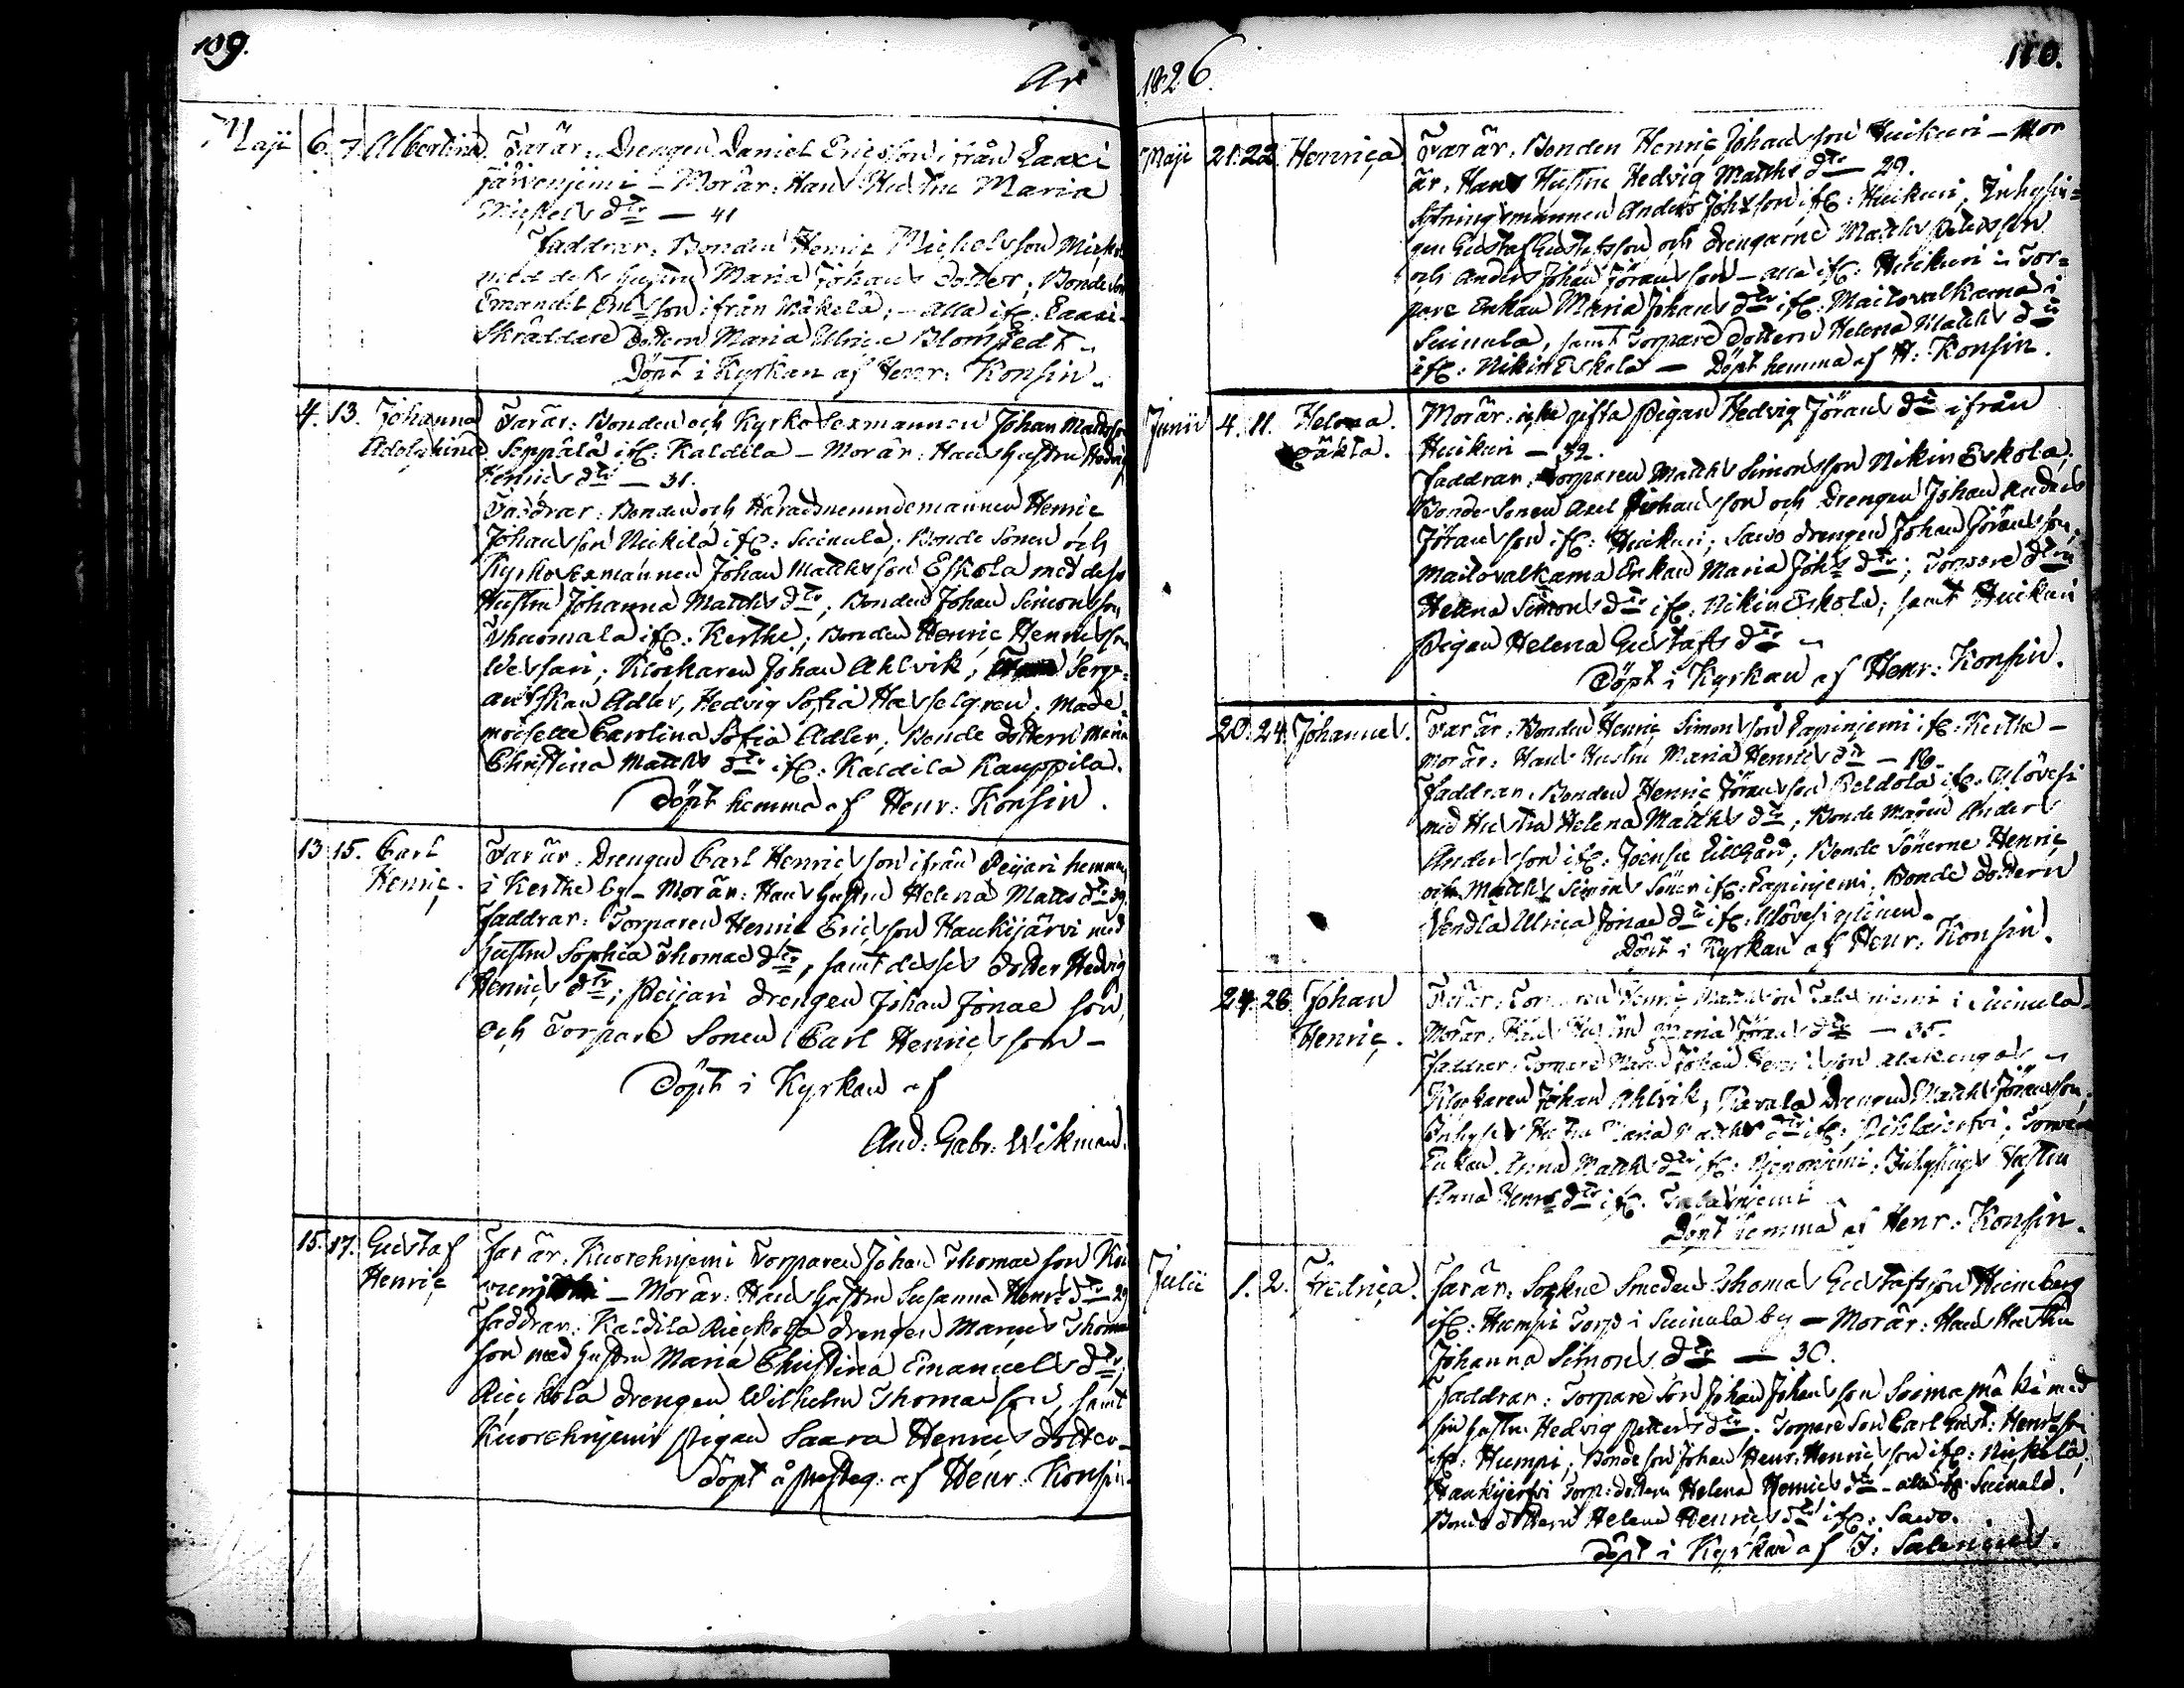 109.
År
Maji 6. 7. Albertina. Far är: Drengen Daniel Ericsson ifrån Laaxi
Järvenjemi – Mor är: Hans Hustru Maria
Michels dtr — 41
Faddrar: Bonden Henric Michelsson
med dess hustru Maria Johans dotter; Bonde Son
Emanuel Ericsson ifrån Mäkelä; – alla if: Laaxi –
Skräddare Dottern Maria Ulrica Blomstedt –
Döpt i Kyrkan af Henr: Konsin.
4. 13. Johanna Far är: Bonden och Kyrko Sexmannen Johan Mattsson
Adolphina Seppälä if: Kaldila – Mor är: Hans hustru Hedvig
Henrics dtr — 31.
Faddrar: Bonden och Häradsnemndemannen Henric
Johansson Nickilä if: Suinula; Bonde Sonen och
Kyrko Sexmannen Johan Matthsson Eskola med dess
Hustru Johanna Matths dtr; Bonden Johan Simonsson
if: Kerthe; Bonden Henric Henricsson
Wessari; Klockaren Johan Ahlvik; Serge-
antskan Adler, Hedvig Sofia Hasselgren; Made-
moiselle Carolina Sofia Adler; Bonde dottern Maria
Christina Matths dtr if: Kaldila Kauppila.
Döpt hemma af Henr: Konsin.
13. 15. Carl Far är: Drengen Carl Henricsson ifrån Peijari hemman
Henric. i Kerthe by – Mor är: Hans hustru Helena Matts dtr 39.
Faddrar: Torparen Henric Ericsson Haukijärvi med
hustru Sophia Thomae dtr, samt desses dotter Hedvig
Henrics dtr; Peijari drengen Johan Jonae son,
och Torpare Sonen Carl Henricsson –
Döpt i Kyrkan af
And: Gabr: Wikman.
15. 17. Gustaf Far är: Kuorehnjemi Torparen Johan Thomae son
Henric – Mor är: Hans hustru Susanna Henrs dtr – 29
Faddrar: Kaldila drengen Marcus Thomae
son med hustru Maria Christina Emanuels dtr;
drengen Wilhelm Thomae son, samt
Kuorehnjemi pigan Saara Henrics dotter –
döpt å af Henr: Konsin.
1826.
110.
Maji 21. 22. Henrica. Far är: Bonden Henric Johansson Huikuri – Mor
är: Hans Hustru Hedvig Matths dtr – 29.
Anders Johsson if: Huikuri, Inhysin-
gen Gustaf Gustafsson och drengarne Matths Petersson
och Anders Johan Jöransson – alla if: Huikuri – Tor-
pare Enkan Maria Johans dtr if: Maitovalkama i
Suinula, samt Torpare Dottern Helena Matths dtr
if: Nikin Eskola — Döpt hemma af H: Konsin.
Junii 4. 11. Helena. Mor är: icke gifta Pigan Hedvig Jörans dtr ifrån
oäkta. Huikuri – 32.
Faddrar: Torparen Matths Simonsson Nikin Eskola;
Bonde Sonen Axel Johansson och Drengen Johan Anders
Jöransson if: Huikuri; Sawo drengen Johan Jöransson;
Maitovalkama Enkan Maria Johs dtr; Torpare dtrn
Helena Simons dtr if: Nikin Eskola; samt Huikuri
Pigan Helena Gustafs dtr –
Döpt i Kyrkan af Henr: Konsin.
20. 24. Johannes. Far är: Bonden Henric Simonsson Papinjemi if: Kerthe –
Mor är: Hans Hustru Maria Henrics dtr –
Faddrar: Bonden Henric Jöransson Peldola if: Ylövesi
med Hustru Helena Matths dtr; Bonde Mågen Anders
Andersson if: Lillgård; Bonde Sönerne Henric
och Matths Simons Söner if: Papinjemi; Bonde dottern
Vendla Ulrica Jonae dtr if:
Döpt i Kyrkan af Henr: Konsin.
24. 28. Johan Far är: Torparen Henric Mattsson i Suinula.
Henric. Mor är: Hans Hustru Maria Jörans dtr — 35.
Faddrar: Torpare Mågen Johan Henricsson
Klockaren Johan Ahlvik; drengen Matths Jöransson;
Inhyses Hustru Maria Matths dtr if: Torpare
Enkan Anna Matths dtr if: Inhysings Hustru
Anna Henrs dtr if:
Döpt hemma af Henr: Konsin.
Julii 1. 2. Fredrica. Far är: Sokne Smeden Thomas Gustafsson Heimberg
if: Humpi Torp i Suinula by – Mor är: Hans Hustru
Johanna Simons dtr — 30.
Faddrar: Torpare Son Johan Johansson Soimamäki med
sin hustru Hedvig Petters dtr; Torpare Son Carl Gust: Henrsson
if: Humpi; Bonde son Johan Henr: Henricsson if: Nickilä;
Haukijerfvi Torp: dottern Helena Henrics dtr – alla if: Suinula.
Bonde dottern Helena Henrics dtr if: Sawo.
döpt i Kyrkan af J: Salenius.